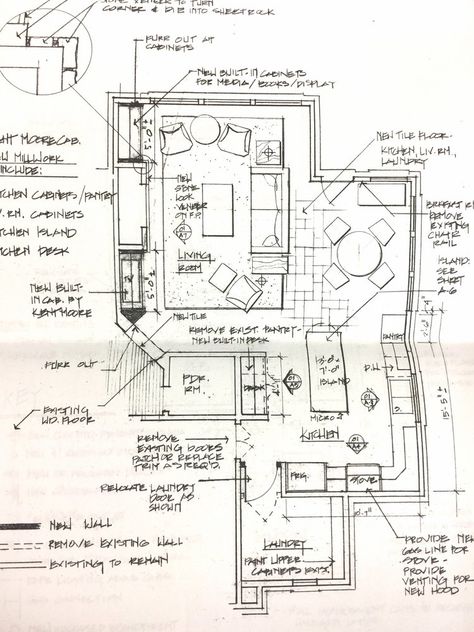 CORNER & DIE INTO SHEETROCK
FURR OUT AT
CABINETS
NEW BUILT-IN CABINETS
FOR MEDIA/BOOKS/DISPLAY
NEW TILE FLOOR-
KITCHEN, LIV. RM.,
LAUNDRY
MOORE CAB.
MILLWORK
INCLUDE:
CABINETS/PANTRY
RM. CABINETS
KITCHEN ISLAND
KITCHEN DESK
5'-0"±
NEW
STONE
LOOK
VENEER
ON F.P.
LIVING
ROOM
REMOVE
EXISTING
CHAIR
RAIL
ISLAND:
SEE
SHEET
A-6
NEW BUILT-
IN CAB. BY
KENTMOORE
5'-0"±
NEW TILE
REMOVE EXIST. PANTRY-
NEW BUILT-IN DESK
FURR OUT
PANTRY
D.W.
15'-5"±
PDR.
RM.
DESK
7'-0"
ISLAND
MICRO
KITCHEN
EXISTING
WD. FLOOR
REMOVE
EXISTING DOORS
PATCH OR REPLACE
TRIM AS REQ'D.
RELOCATE LAUNDRY
DOOR AS
SHOWN
FRIG.
STOVE
NEW WALL
REMOVE EXISTING WALL
EXISTING TO REMAIN
LAUNDRY
PAINT UPPER
CABINETS EXIST.
PROVIDE NEW
GAS LINE FOR
STOVE -
PROVIDE
VENTING FOR
NEW HOOD